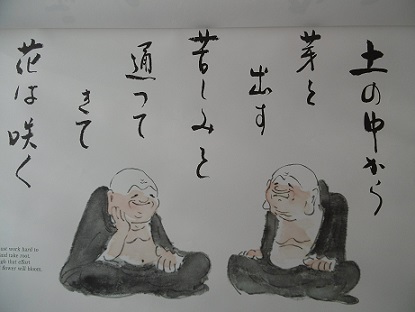 土の中から
芽を
出す
苦しみを
通って
きて
花は咲く
work hard to
take root.
that effort
flower will bloom.